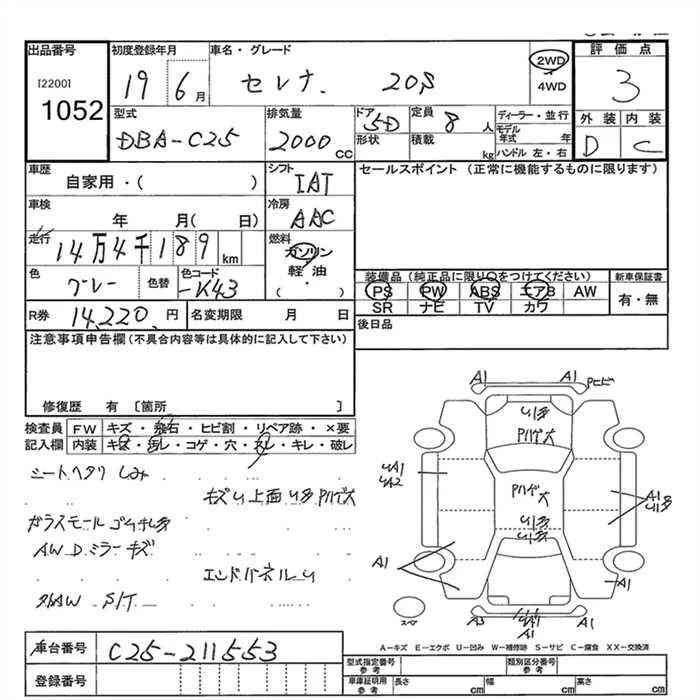 出品番号
[2200]
1052
初度登録年月
19 6月
車名・グレード
セレナ 20S
2WD
4WD
評価点
3
外装 内装
D C
型式
DBA-C25
排気量
2000cc
ドア
5D
形状
定員
8人
積載
kg
ディーラー・並行
モデル年式 年
ハンドル 左・右
車歴
自家用・( )
車検
年 月(日)
走行
14万4千189km
色
グレー
色替
色コード
K43
シフト
IAT
冷房
AAC
燃料
ガソリン
軽油・
( )
セールスポイント (正常に機能するものに限ります)
装備品 (純正品に限り○をつけてください)
PS PW ABS エアB AW
SR ナビ TV カワ
新車保証書
有・無
R券 14,220 円
名変期限 月 日
後日品
注意事項申告欄(不具合内容等は具体的に記入して下さい)
修復歴 有 [箇所 ]
検査員記入欄
FW キズ・飛石・ヒビ割・リペア跡・×要
内装 キズ・汚レ・コゲ・穴・スレ・キレ・破レ
シートヘタリ しみ
ガラスモール
AW Dミラー キズ
エンドパネルU
S/T
A1 A1
A1
A2
A1
A1
A1
A3
A1
スペア
A-キズ E-エクボ U-凹み W-補修跡 S-サビ C-腐食 XX-交換済
車台番号 C25-211553
登録番号
型式指定番号 参考
類別区分番号 参考
車庫証明用 参考
長さ cm 幅 cm 高さ cm